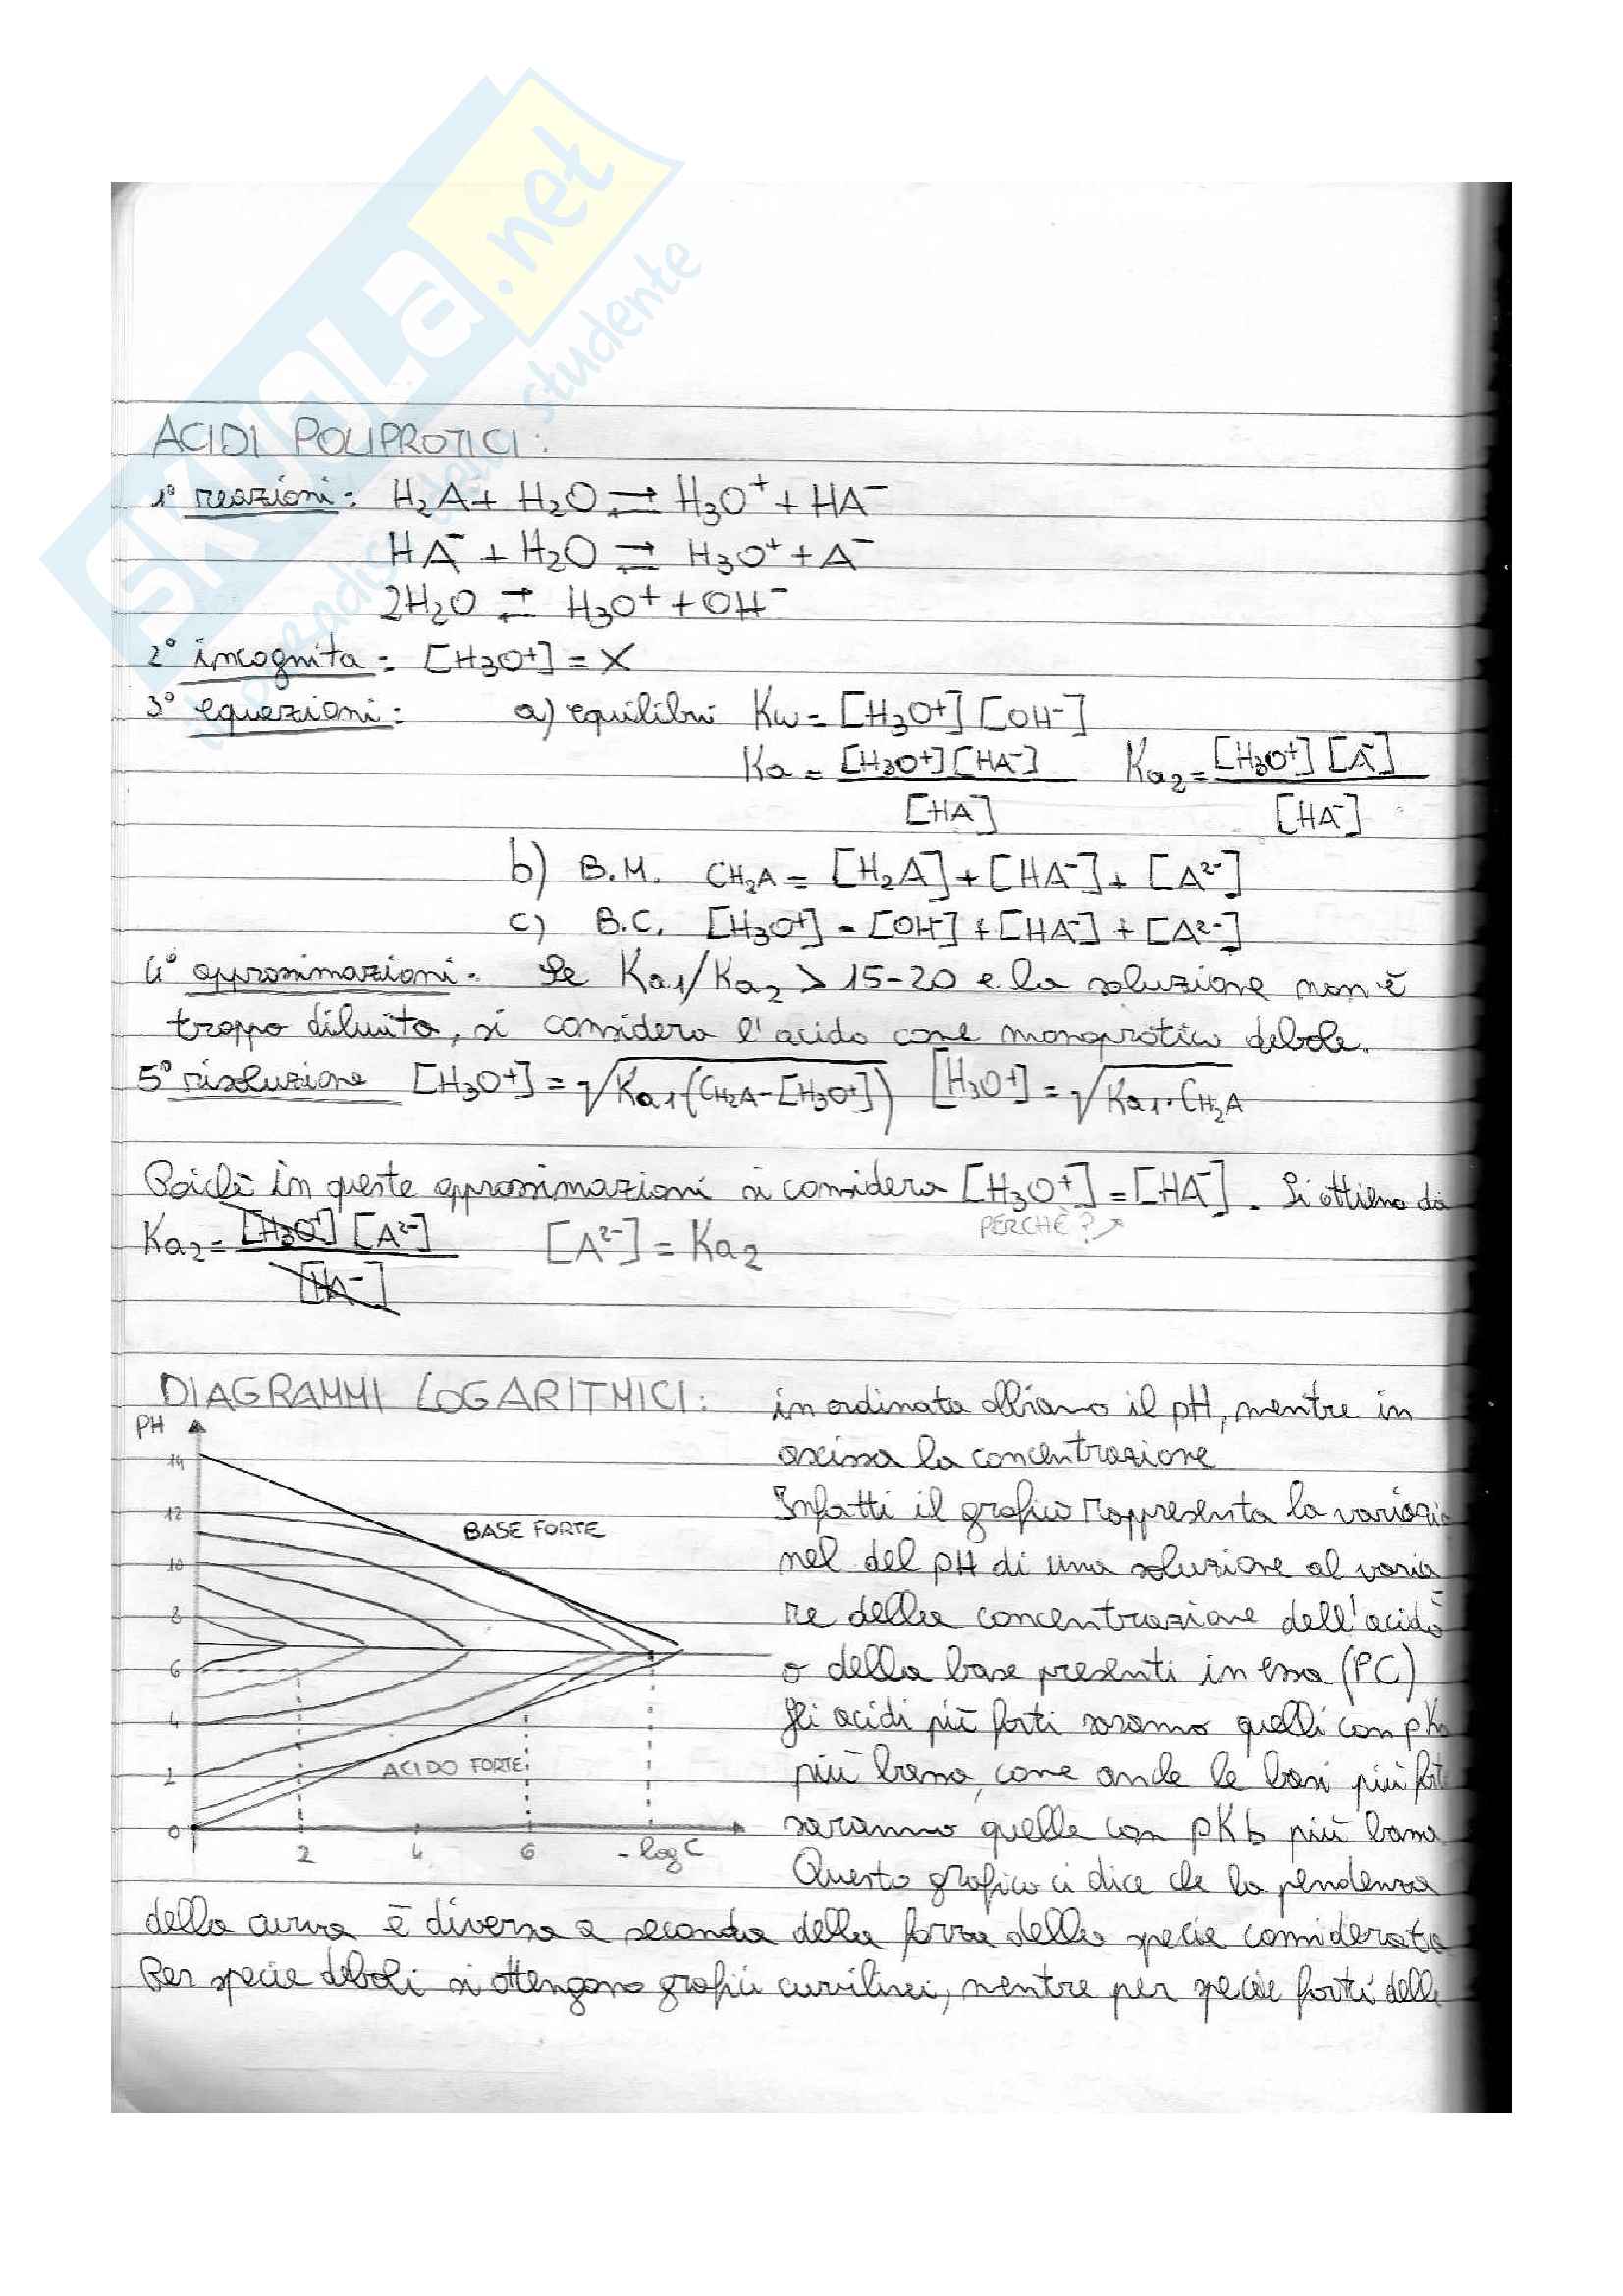 SKUOLA.net
ACIDI POLIPROTICI:
1° reazioni: H₂A + H₂O ⇄ H₃O⁺ + HA⁻
HA⁻ + H₂O ⇄ H₃O⁺ + A⁻
2H₂O ⇄ H₃O⁺ + OH⁻
2° incognita: [H₃O⁺] = X
3° equazioni: a) equilibri Kw = [H₃O⁺] [OH⁻]
Ka = [H₃O⁺] [HA⁻] / [HA] Ka₂ = [H₃O⁺] [A⁻] / [HA⁻]
b) B.M. CH₂A = [H₂A] + [HA⁻] + [A²⁻]
c) B.C. [H₃O⁺] = [OH⁻] + [HA⁻] + [A²⁻]
4° approssimazioni: Se Ka₁/Ka₂ > 15-20 e la soluzione non è
troppo diluita, si considera l'acido come monoprotico debole.
5° risoluzione [H₃O⁺] = √Ka₁(CH₂A-[H₃O⁺]) [H₃O⁺] = √Ka₁·CH₂A
Poichè in queste approssimazioni si considera [H₃O⁺] = [HA⁻]. Si ottiene da
PERCHÈ?
Ka₂ = [H₃O⁺] [A²⁻] / [HA⁻] [A²⁻] = Ka₂
DIAGRAMMI LOGARITMICI: in ordinata abbiamo il pH, mentre in
ascissa la concentrazione
Infatti il grafico rappresenta la variazio
nel del pH di una soluzione al varia
re della concentrazione dell'acido
o della base presenti in essa (PC)
Gli acidi più forti saranno quelli con pKa
più bassa, come anche le basi più forti
saranno quelle con pKb più bassa
Questo grafico ci dice che la pendenza
della curva è diversa a seconda della forza della specie considerata
Per specie deboli si ottengono grafici curvilinei, mentre per specie forti delle
PH
14
12
10
8
6
4
2
0
BASE FORTE
ACIDO FORTE
2 4 6 -log C